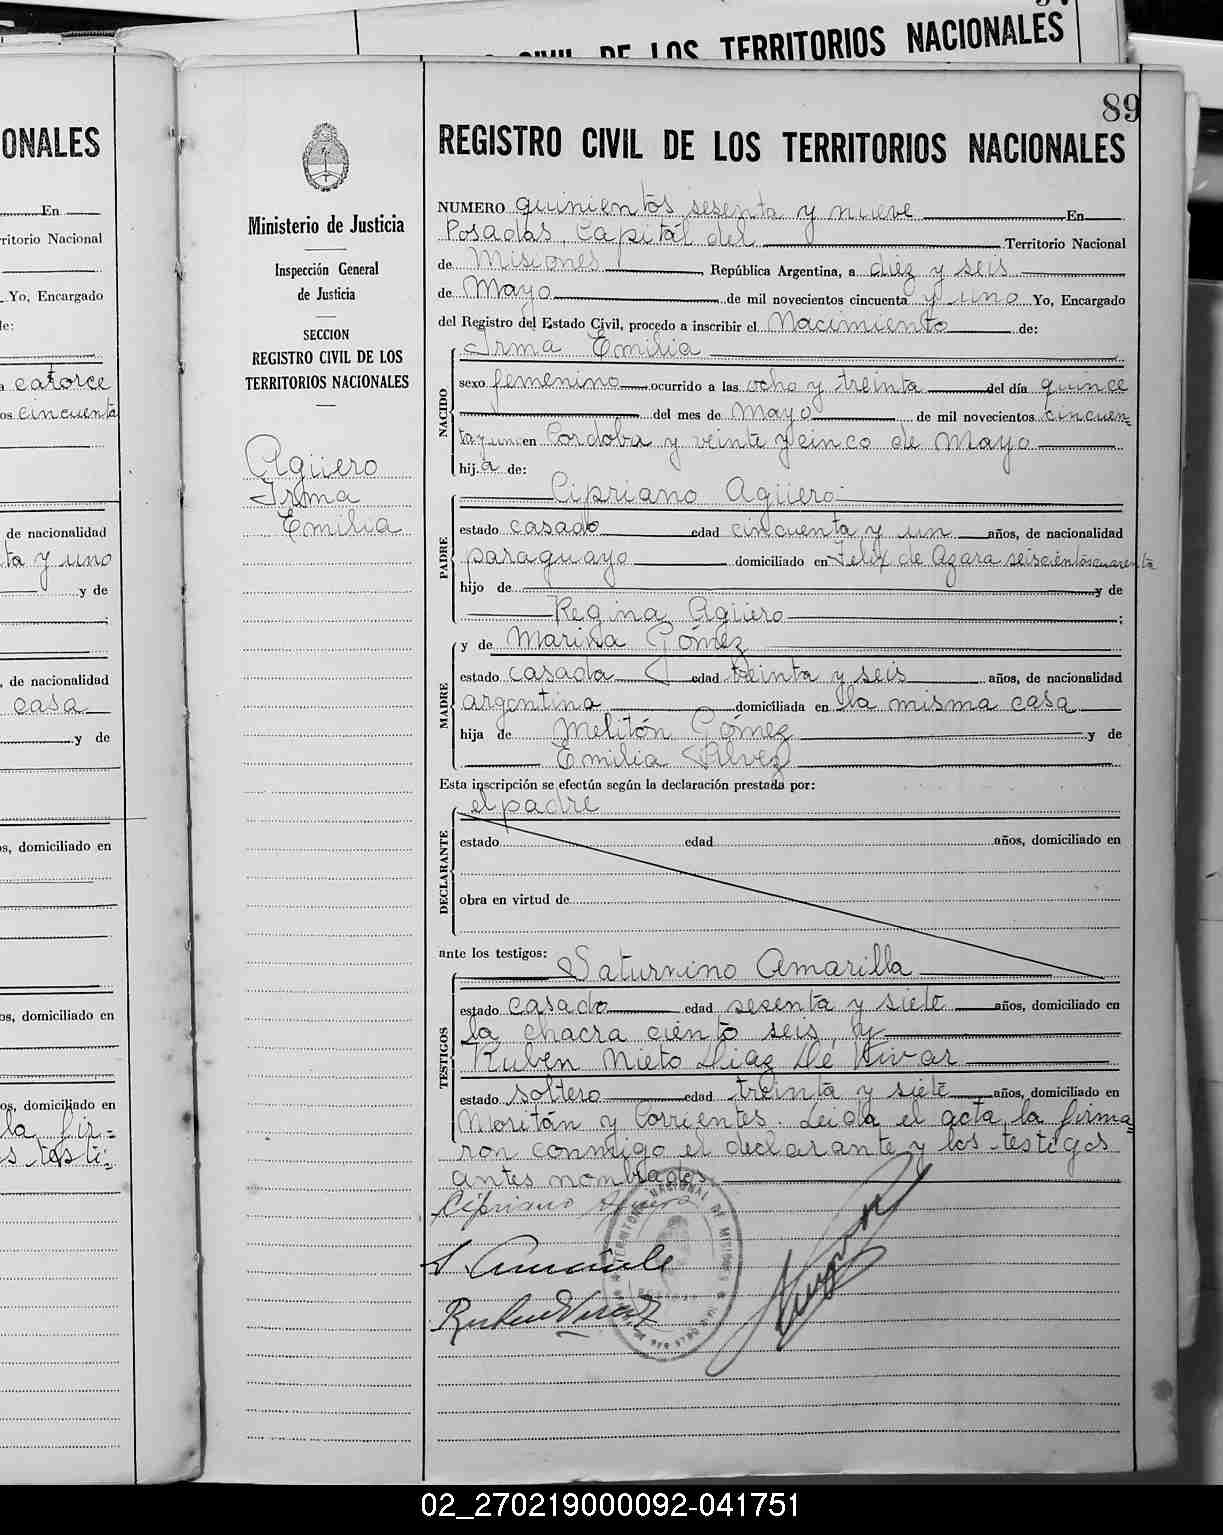 CIVIL DE LOS TERRITORIOS NACIONALES
ONALES
En
rritorio Nacional
Yo, Encargado
de:
a catorce
os cincuenta
de nacionalidad
ta y uno
y de
, de nacionalidad
casa
y de
os, domiciliado en
os, domiciliado en
os, domiciliado en
la fir=
s testi=
Ministerio de Justicia
Inspección General
de Justicia
SECCION
REGISTRO CIVIL DE LOS
TERRITORIOS NACIONALES
Agüero
Irma
Emilia
89
REGISTRO CIVIL DE LOS TERRITORIOS NACIONALES
NUMERO quinientos sesenta y nueve En
Posadas, Capital del Territorio Nacional
de Misiones, República Argentina, a diez y seis
de Mayo de mil novecientos cincuenta y uno Yo, Encargado
del Registro del Estado Civil, procedo a inscribir el Nacimiento de:
NACIDO
Irma Emilia
sexo femenino ocurrido a las ocho y treinta del día quince
del mes de Mayo de mil novecientos cincuen=
ta y uno en Cordoba y veinte y cinco de Mayo
hija de:
PADRE
Cipriano Agüero
estado casado edad cincuenta y un años, de nacionalidad
paraguayo domiciliado en Felix de Azara seiscientos cuarenta
hijo de y de
Regina Agüero ;
MADRE
y de Marina Gómez
estado casada edad treinta y seis años, de nacionalidad
argentina domiciliada en la misma casa
hija de Melitón Gómez y de
Emilia Galvez
Esta inscripción se efectúa según la declaración prestada por:
DECLARANTE
el padre
estado edad años, domiciliado en
obra en virtud de
ante los testigos:
TESTIGOS
Saturnino Amarilla
estado casado edad sesenta y siete años, domiciliado en
la chacra ciento seis, y
Ruben Nieto Diaz De Vivar
estado soltero edad treinta y siete años, domiciliado en
Moritán y Corrientes. Leida el acta, la firma=
ron conmigo el declarante y los testigos
antes nombrados.
Cipriano Agüero
S. Amarilla
02_270219000092-041751